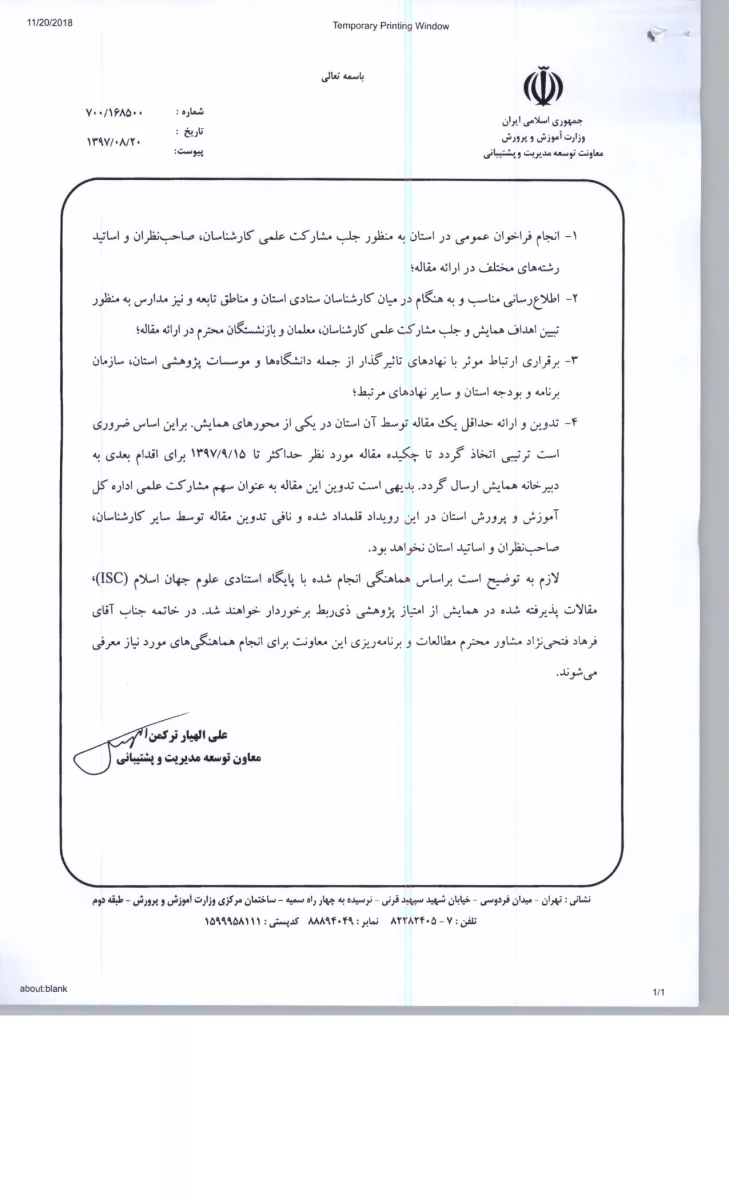 11/20/2018
Temporary Printing Window
باسمه تعالی
جمهوری اسلامی ایران
وزارت آموزش و پرورش
معاونت توسعه مدیریت و پشتیبانی
شماره : ۷۰۰/۱۶۸۵۰۰
تاریخ : ۱۳۹۷/۰۸/۲۰
پیوست:
۱- انجام فراخوان عمومی در استان به منظور جلب مشارکت علمی کارشناسان، صاحب‌نظران و اساتید
رشته‌های مختلف در ارائه مقاله؛
۲- اطلاع‌رسانی مناسب و به هنگام در میان کارشناسان ستادی استان و مناطق تابعه و نیز مدارس به منظور
تبیین اهداف همایش و جلب مشارکت علمی کارشناسان، معلمان و بازنشستگان محترم در ارائه مقاله؛
۳- برقراری ارتباط موثر با نهادهای تاثیرگذار از جمله دانشگاه‌ها و موسسات پژوهشی استان، سازمان
برنامه و بودجه استان و سایر نهادهای مرتبط؛
۴- تدوین و ارائه حداقل یک مقاله توسط آن استان در یکی از محورهای همایش. براین اساس ضروری
است ترتیبی اتخاذ گردد تا چکیده مقاله مورد نظر حداکثر تا ۱۳۹۷/۹/۱۵ برای اقدام بعدی به
دبیرخانه همایش ارسال گردد. بدیهی است تدوین این مقاله به عنوان سهم مشارکت علمی اداره کل
آموزش و پرورش استان در این رویداد قلمداد شده و نافی تدوین مقاله توسط سایر کارشناسان،
صاحب‌نظران و اساتید استان نخواهد بود.
لازم به توضیح است براساس هماهنگی انجام شده با پایگاه استنادی علوم جهان اسلام (ISC)،
مقالات پذیرفته شده در همایش از امتیاز پژوهشی ذی‌ربط برخوردار خواهند شد. در خاتمه جناب آقای
فرهاد فتحی‌نژاد مشاور محترم مطالعات و برنامه‌ریزی این معاونت برای انجام هماهنگی‌های مورد نیاز معرفی
می‌شوند.
علی الهیار ترکمن
معاون توسعه مدیریت و پشتیبانی
نشانی : تهران - میدان فردوسی - خیابان شهید سپهبد قرنی - نرسیده به چهار راه سمیه - ساختمان مرکزی وزارت آموزش و پرورش - طبقه دوم
تلفن : ۷ - ۸۲۲۸۲۴۰۵ نمابر : ۸۸۸۹۴۰۴۹ کدپستی : ۱۵۹۹۹۵۸۱۱۱
about:blank
1/1